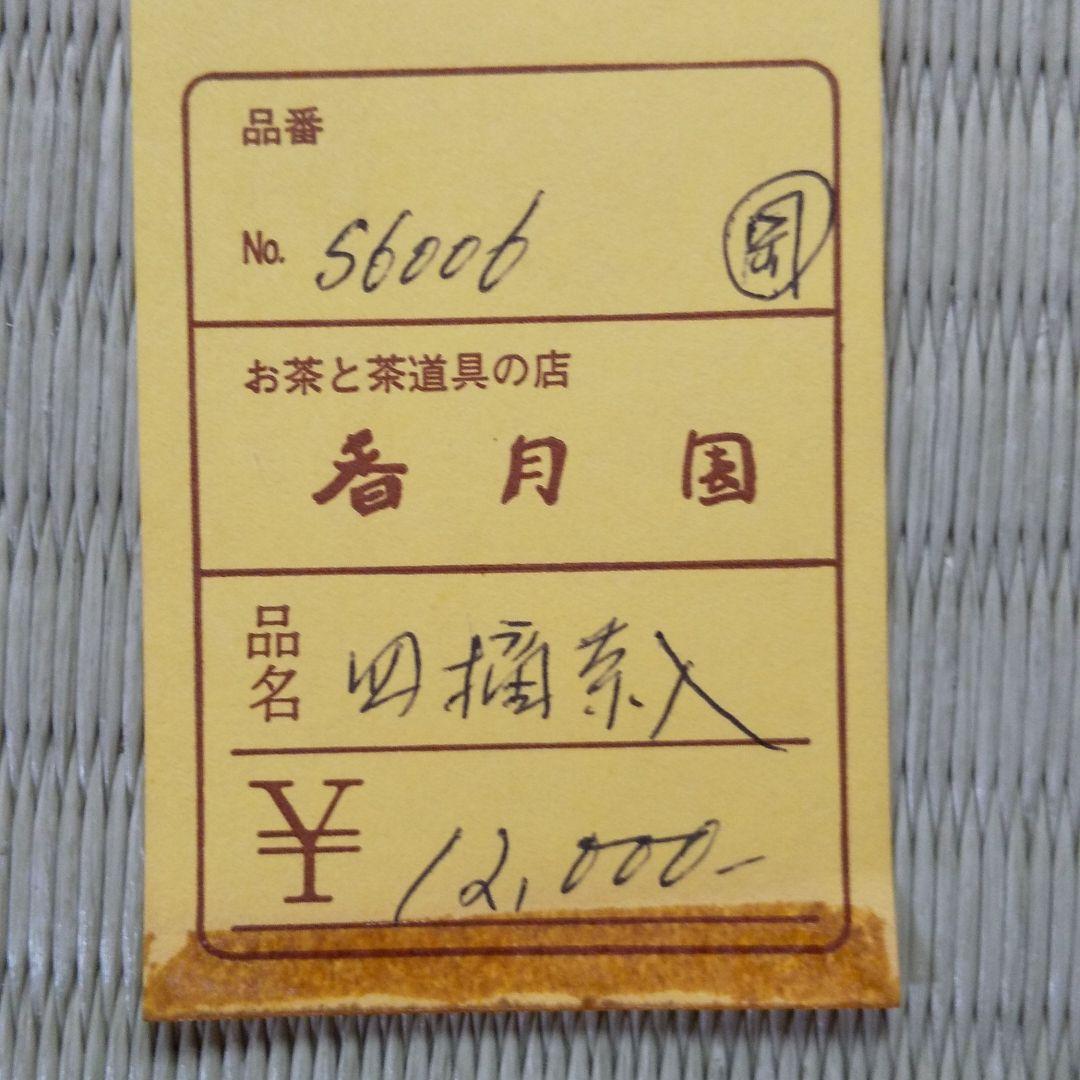 品番
No. S6006 岡
お茶と茶道具の店
香月園
品名 四摘茶入
¥ 12,000-